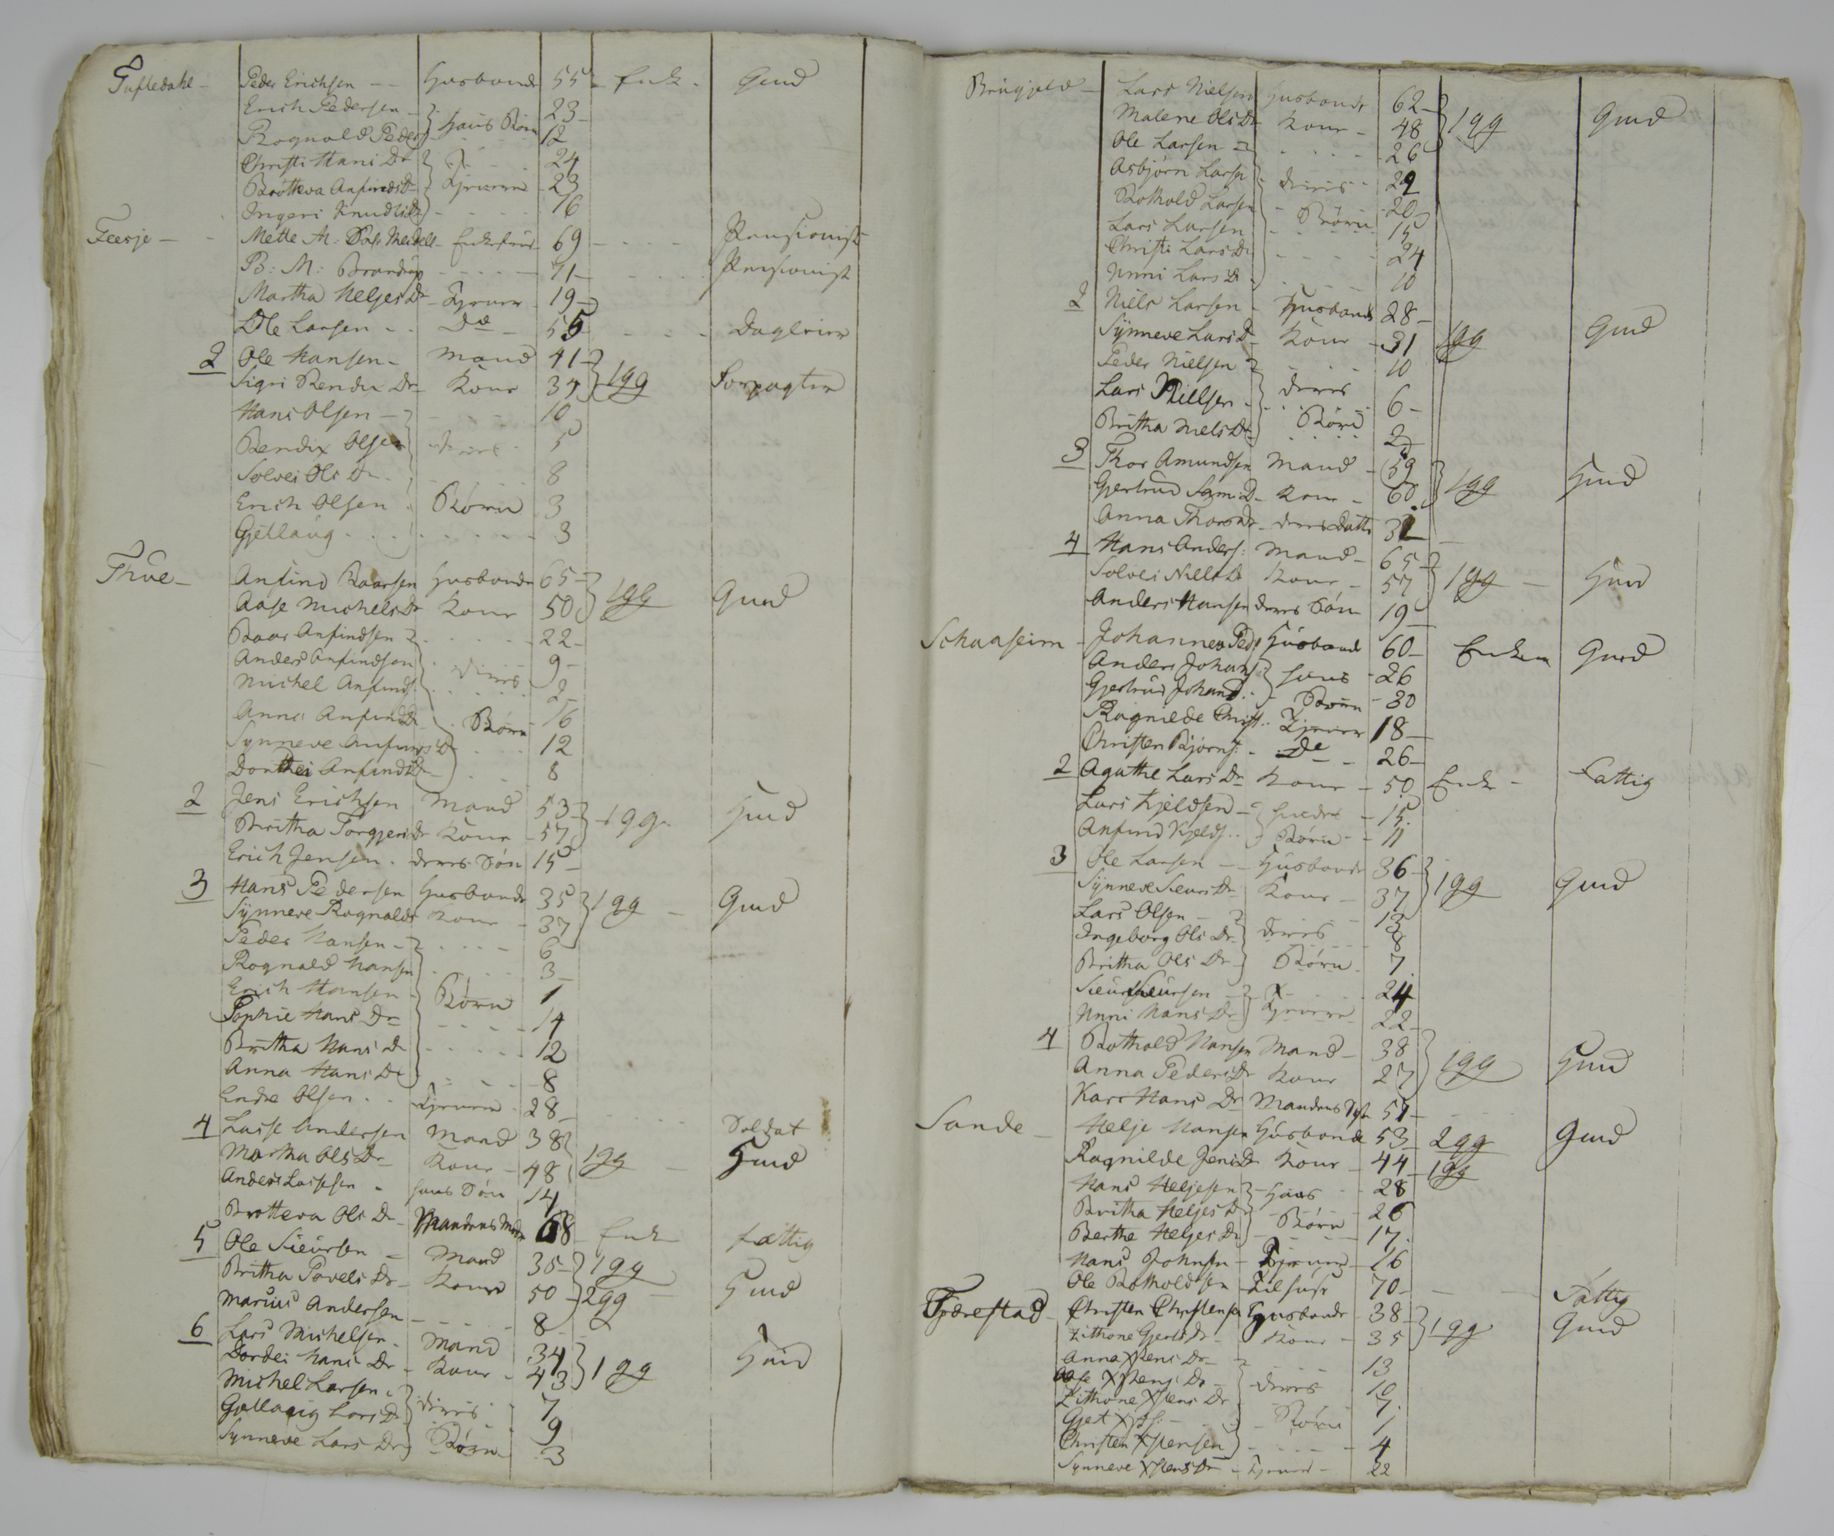 Tufledahl - Peder Erichsen - - Husbonde 55 - Enk. - Gmd
Erich Pedersen - 23 -
Rognald Peders hans Børn 12
Christi Hans Dr 24
Brotteva Anfinds Dr Tjenere 23
Ingeri Knuds Dr 16
Feesje - Mette M: Enkefrue 69 - Pensionist
B: M: 71 - Pensionist
Martha Heljes Dr - Tjener 19 -
Ole Larsen - - De - 55 Dagleier
2 Ole Hansen - Mand 41 - 1gg Forpagter
Sigri Bendix Dr - Kone 34
Hans Olsen - 10
Bendix Olsen deres 5
Solvei Ols Dr - 8
Erich Olsen Børn 3
Gjetlaug 3
Thue - Anfind Baarsen Husbonde 65 - 1gg Gmd
Aase Michels Dr Kone 50
Baar Anfindsen 22 -
Anders Anfindsen deres 9 -
Michel Anfinds: 2 -
Anna Anfinds D Børn 16
Synneve Anfinds D 12
Dorthei Anfinds D 8
2 Jens Erichsen Mand 53 - 1gg - Hmd
Britha Torgjers Dr Kone - 57
Erich Jensen - deres Søn 15 -
3 Hans Pedersen Husbonde 35 1gg - Gmd
Synneve Rognalds Kone - 37
Peder Hansen - 6
Rognald Hansen 3 -
Erich Hansen Børn 1
Sophie Hans Dr 14
Britha Hans D 12
Anna Hans Dr - 8
Endre Olsen - - Tjener 28 -
4 Lasse Andersen Mand 38 1gg - Soldat
Martha Ols Dr - Kone - 48 Hmd
Anders Lassesen - hans Søn 14
Brotteva Ols Dr - Mandens Moder 68 - Enk fattig
5 Ole Sieursen - Mand 35 - 1gg
Britha Povels Dr - Kone 50 - 2gg - Hmd
Marius Andersen 8 -
6 Lars Michelsen - Mand 34 1gg Hmd
Dordei Hans Dr - Kone - 43
Michel Larsen - deres 7
Gjetlaug Lars Dr 9
Synneve Lars Dr Børn 3
Lars Nielsen Husbonde 62 - 1gg Gmd
Malene Ols Dr - Kone - 48
Ole Larsen - 26
Asbjørn Larse deres 22
Bothold Larsen Børn 20
Lars Larsen 15
Christi Lars Dr 24
Unni Lars D 10
2 Niels Larsen - Husbonde 28 - 1gg Gmd
Synneve Lars D - Kone - 31
Peder Nielsen 10
Lars Nielsen - deres 6 -
Britha Niels Dr Børn 2
3 Thor Amundsen Mand - 59 1gg Hmd
Gjertrud Sam: D - Kone - 60
Anna Thors Dr - deres Datter 31
4 Hans Anders: Mand - 65 - 1gg - Hmd
Solvei Niels Dr Kone - 57
Anders Hansen deres Søn 19 -
Schaaseim - Johannes Peds Husbond 60 - Enkem Gmd
Anders Johans: hans 26
Gjertrud Johans: Børn 30
Ragnilde Christ: - Tjener 18 -
Christen Bjørns: - De - 26 -
2 Agathe Lars Dr Kone - 50 Enke - Fattig
Lars Kjeldsen - hendes 15
Anfind Kjelds: - Børn - 11
3 Ole Larsen - Husbonde 36 - 1gg Gmd
Synneve Sieurs Dr - Kone - 37
Lars Olsen - deres - 13
Ingeborg Ols Dr - 8
Britha Ols Dr - Børn - 7
Sieur Sieursen - 24
Unni Hans Dr - Tjenere 22 -
4 Bothold Hansen Mand - 38 1gg Hmd
Anna Peders Dr Kone 27
Kari Hans Dr Mandens Syst 51 -
Sande - Helje Hansen Husbonde 53 - 2gg Gmd
Ragnilde Jens Dr Kone - 44 - 1gg
Hans Heljesen hans 28
Britha Heljes Dr 26
Berthe Heljes Dr Børn 17
Hans Johnsen - Tjener - 16
Ole Botholdsen - Tilhuse 70 - Fattig
Fjærestad - Christen Christensen Husbonde 38 - 1gg Gmd
Zithone Gjerts Dr - Kone - 35
Anna Xstens Dr - 13
Aase Xstens Dr - deres 10
Zithone Xstens Dr 7
Gjert Børn 1
Christen Xstensen 4
Synneve Xstens Dr - Tjener - 22